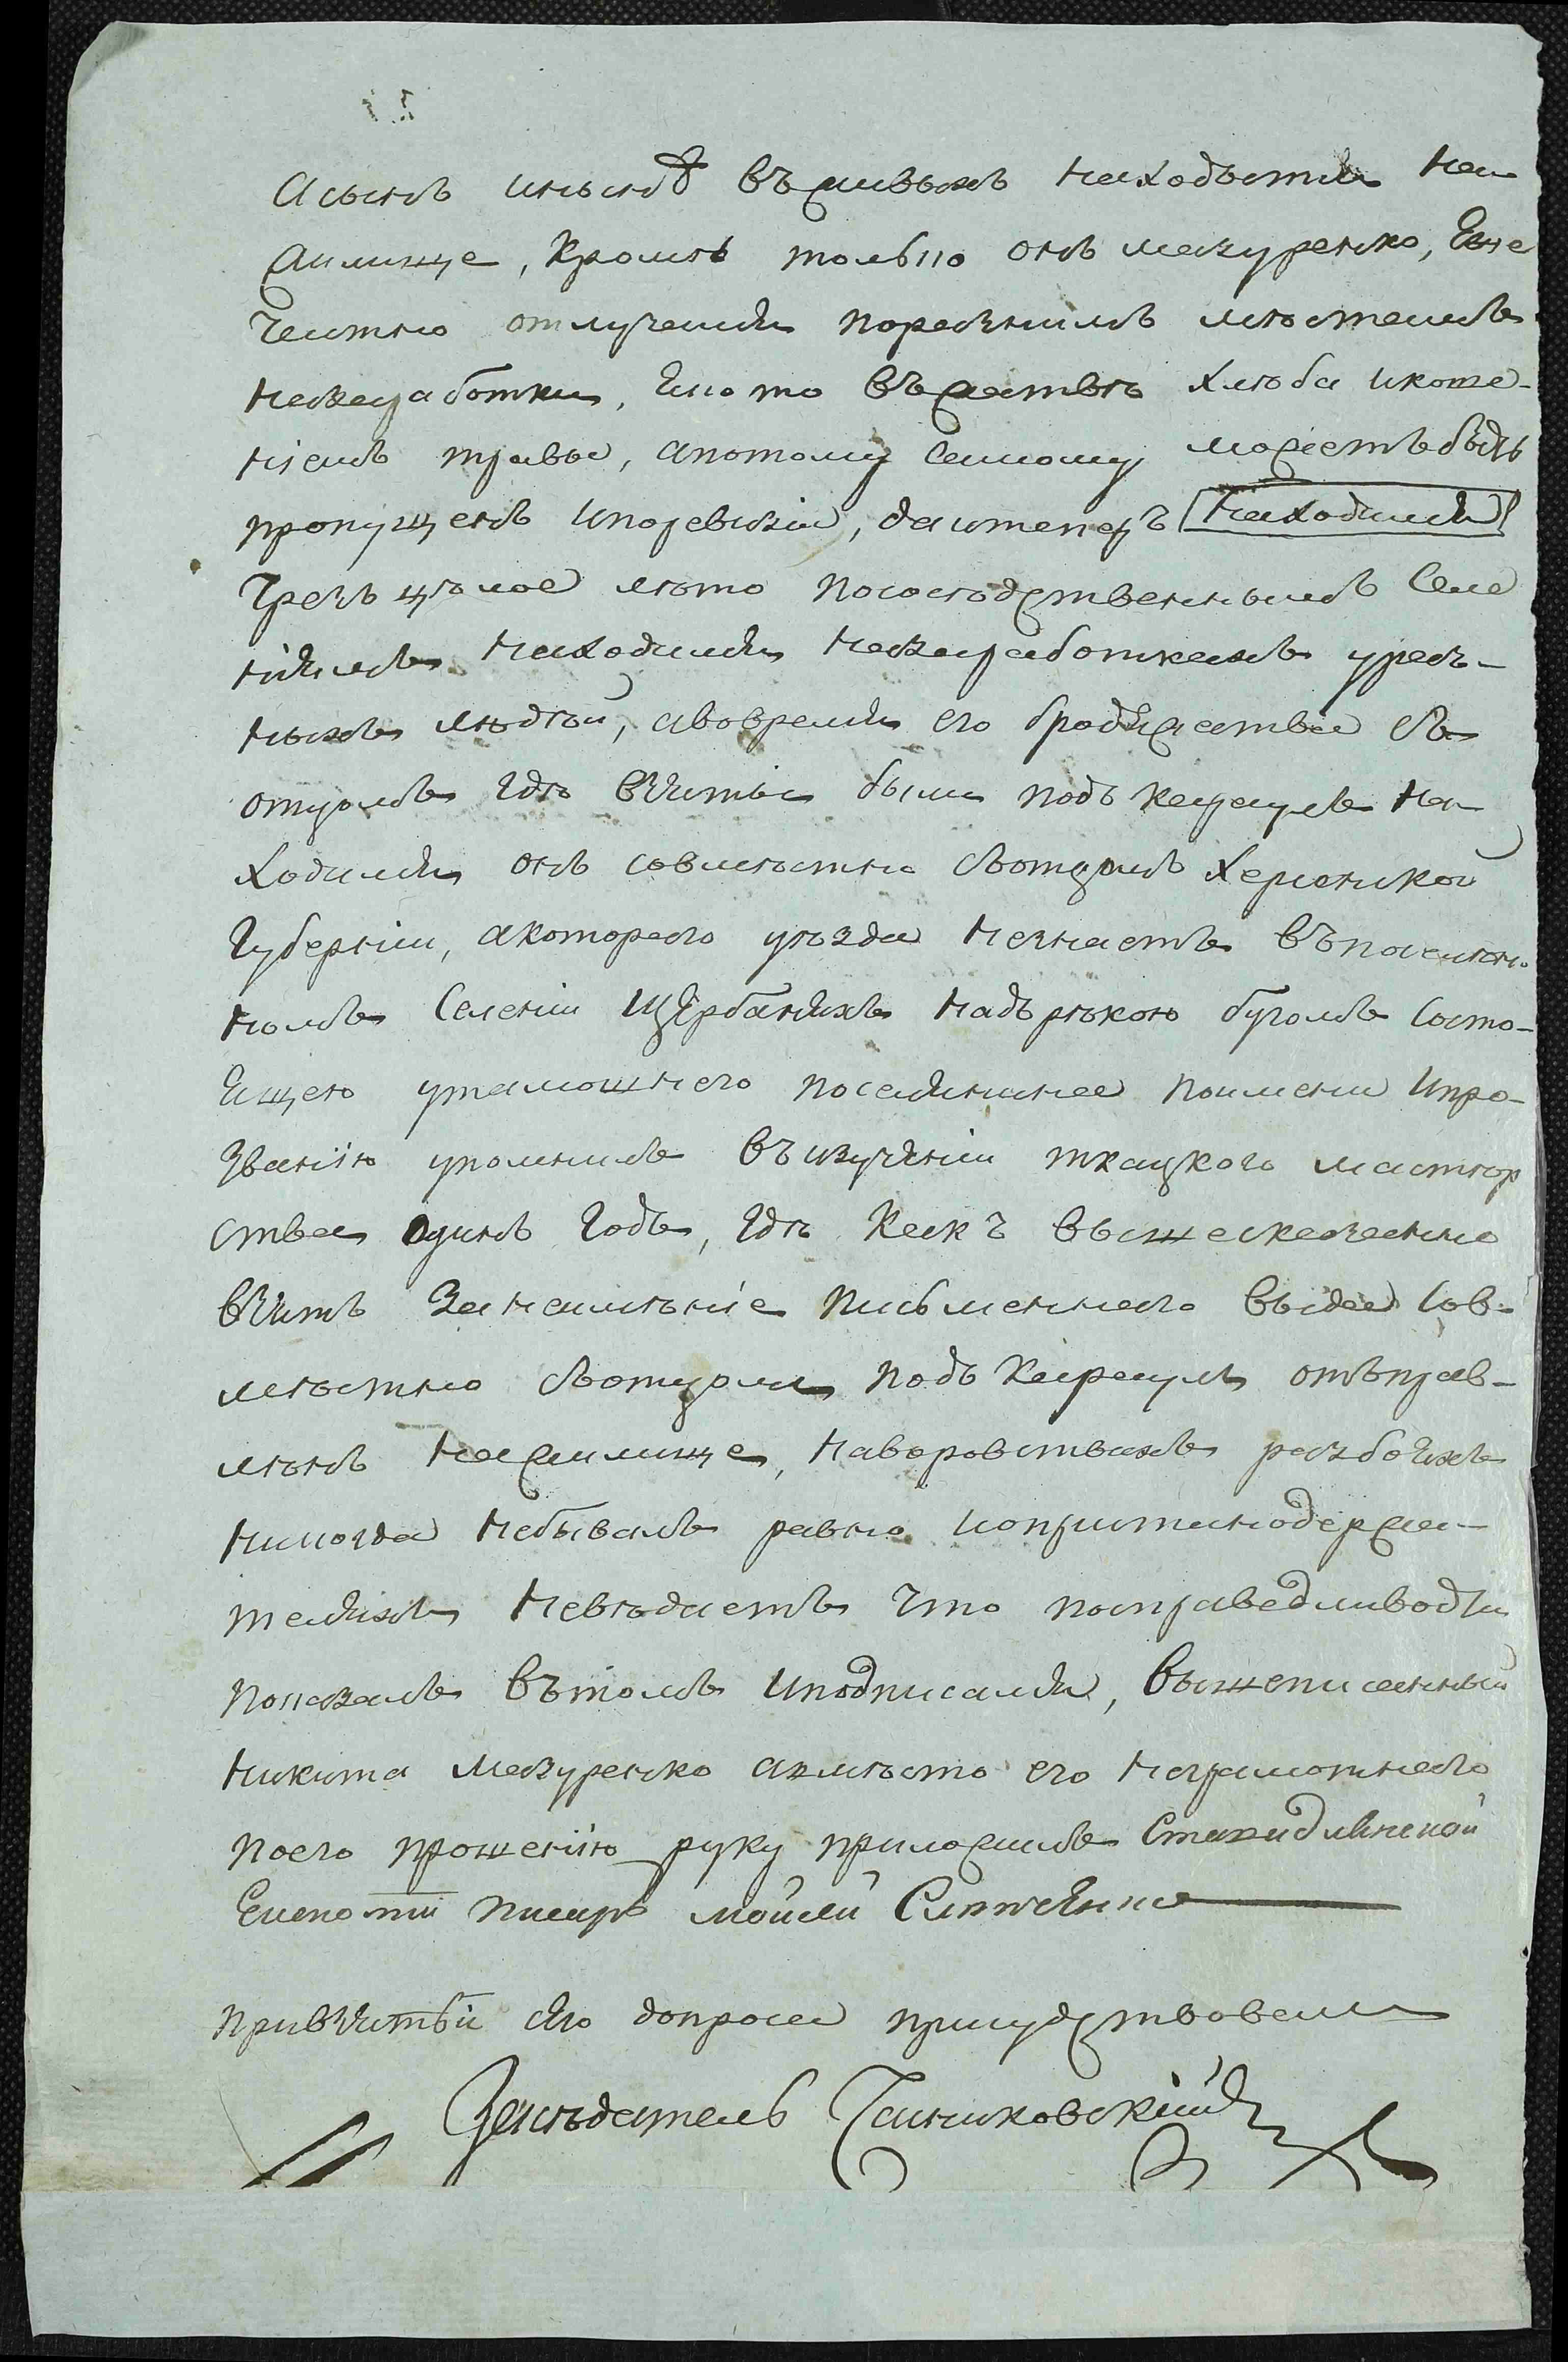 а сынъ и нынѣ въ живыхъ находытся на
жилище, кромѣ только онъ мазуренко, Еще
частно отлучался поразнымъ мѣстамъ
назаработки, Како то въ жатвѣ хлѣба икоше-
ніемъ травы, апотому самому можетъ быть
пропущенъ ипоревизіи, даитеперъ находился
Чрезъ цѣлое лѣто пососѣдственнымъ Селе
ніямъ находился назаработкахъ уразъ-
ныхъ людѣй, авовремя его бродяжества съ
отцомъ гдѣ взятые были подъ караулъ на-
ходился онъ совмѣстно сьотцомъ херсонской
губерніи, акоторого уѣзда незнаетъ въпоселен-
номъ Селеніи Щербаняхъ надърѣкою бугомъ Состо-
Ящею утамошнего поселянина поимени ипро-
званію упомнилъ въизученіи ткацкого мастер
ства одинъ годъ, гдѣ какъ вышесказанно
взятъ занеимѣніе письменного выда сов-
мѣстно сьотцомъ подъ караулъ отъправ-
лѣнъ нажилище, наворовствахъ разбояхъ
никогда небывалъ равно иопристанодержа-
теляхъ невѣдаетъ что посправедливости
показалъ вътомъ иподписался, вышеписанный
никита мазуренко авмѣсто его неграмотнего
поего прошенію руку приложилъ
писарь мойсей

привзятьи сего допроса присудствовалъ
Засѣдатель